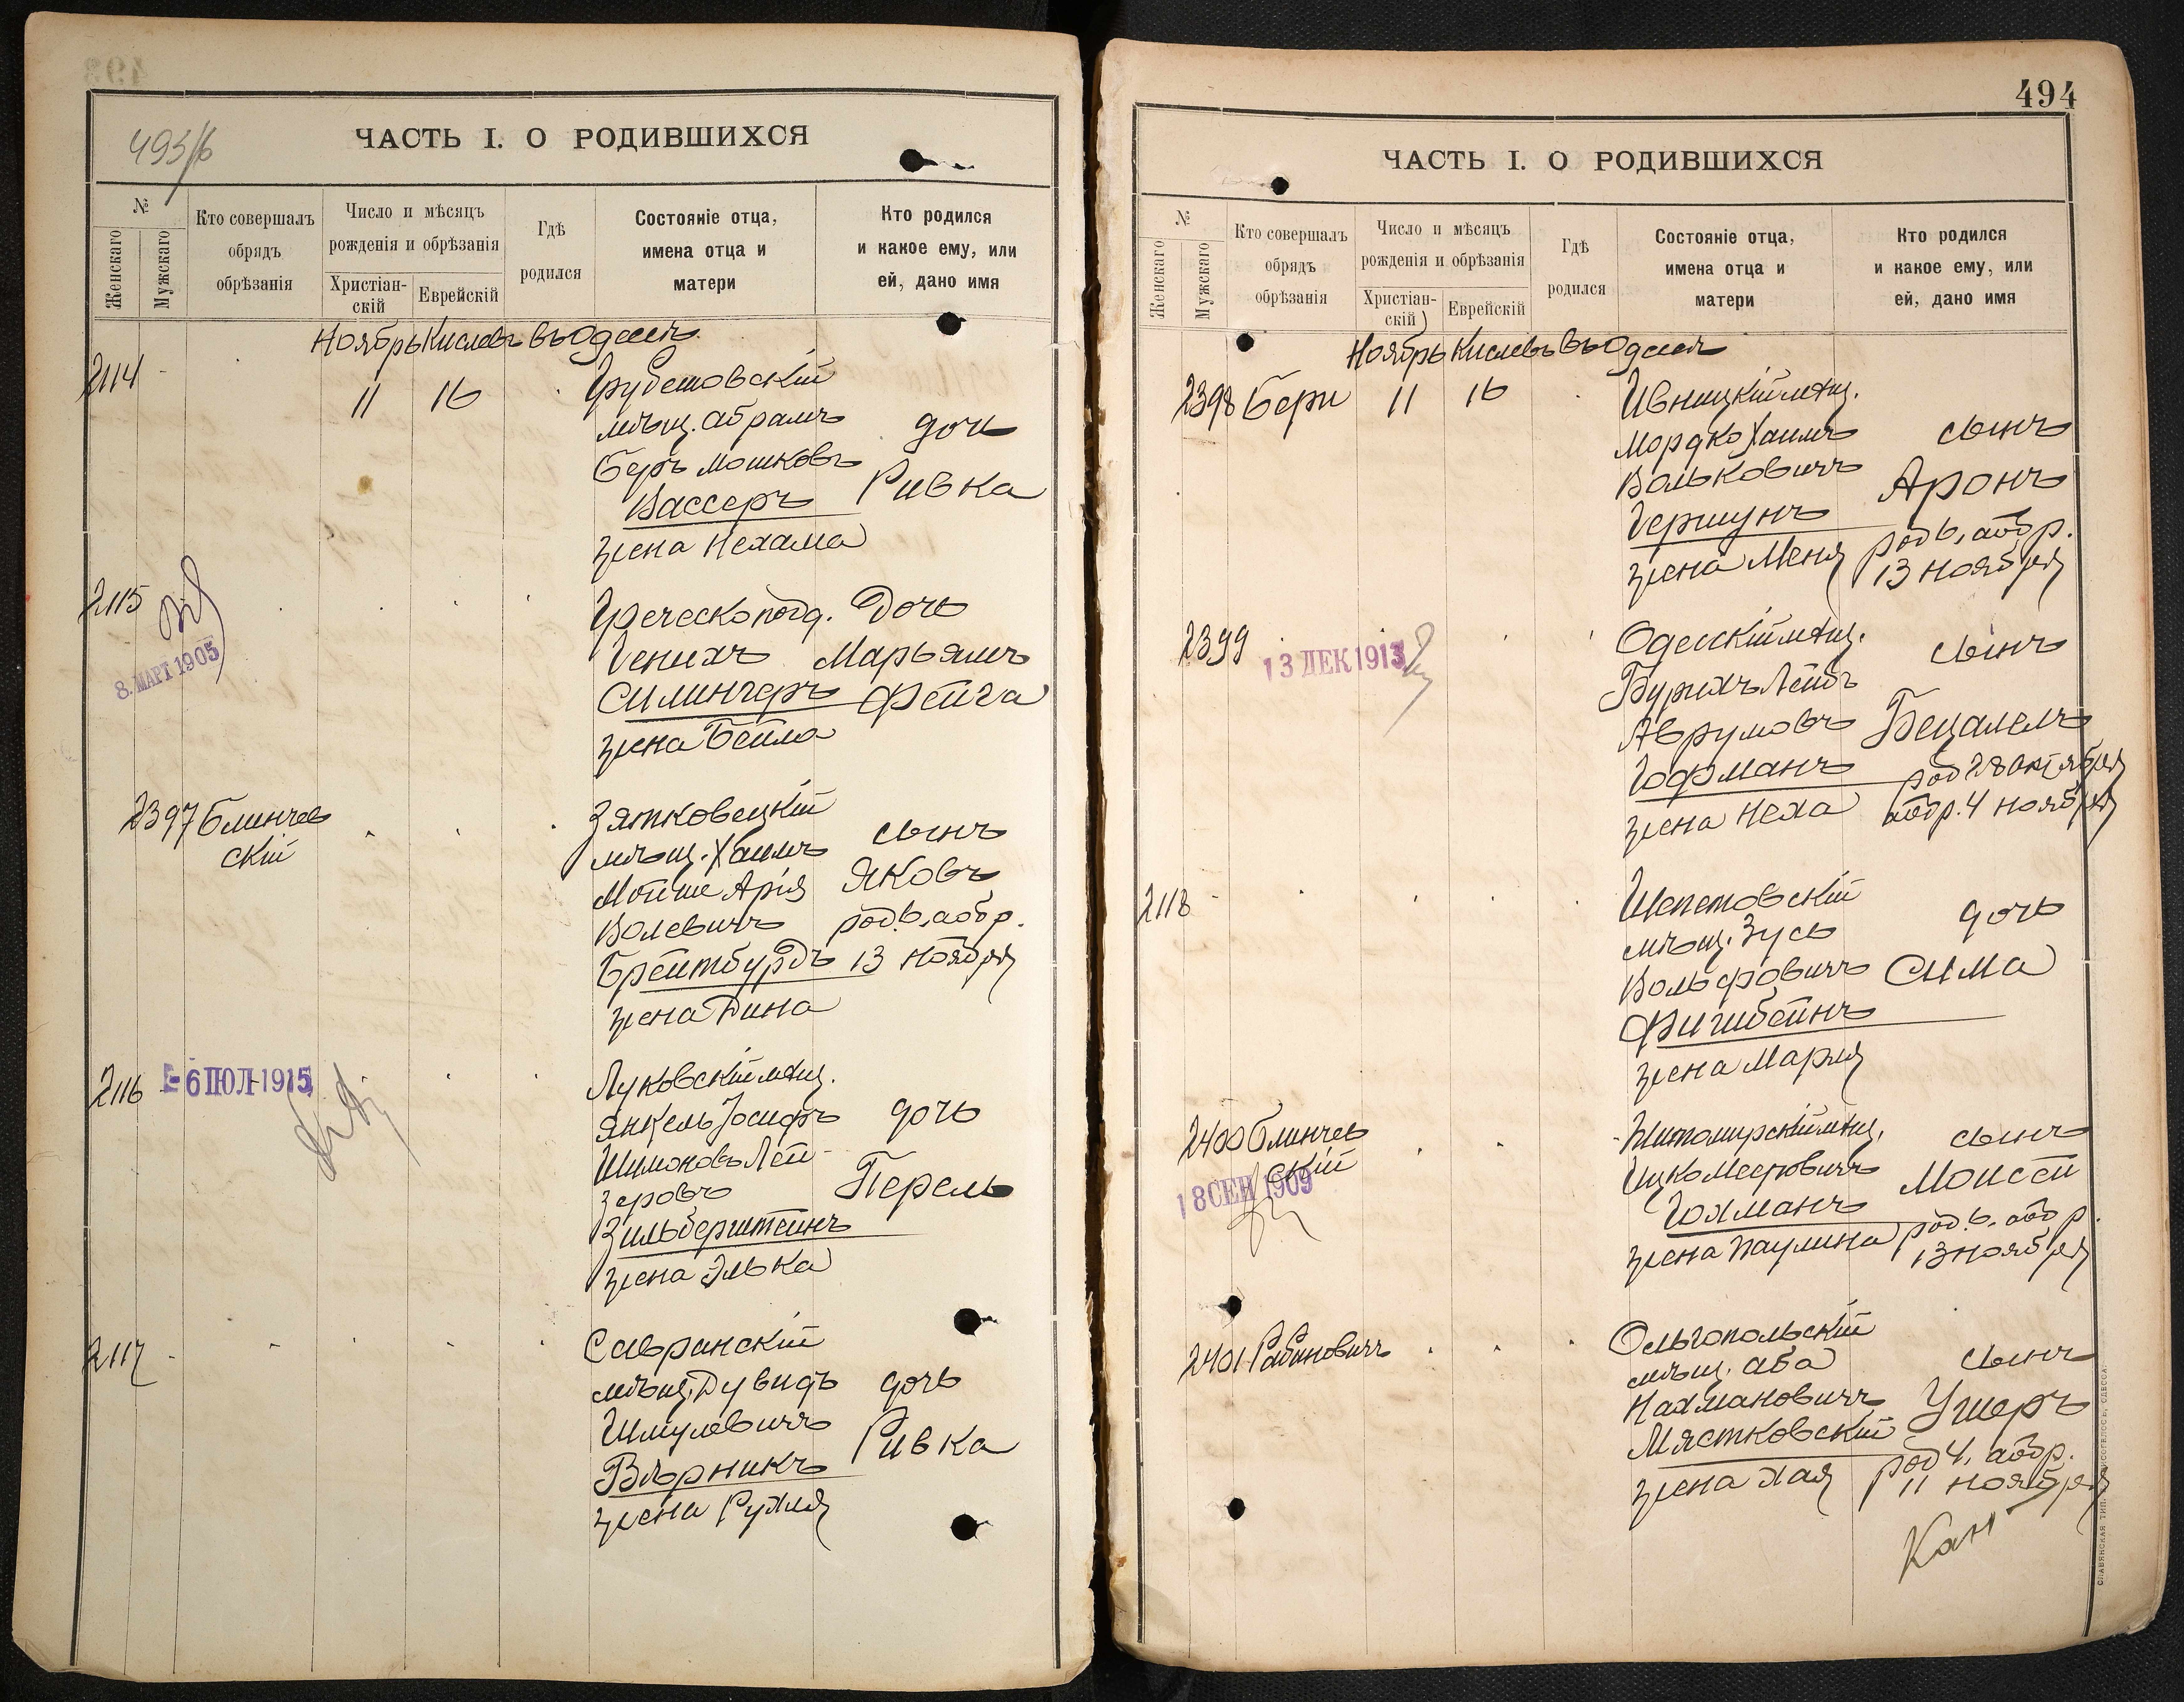 ЧАСТЬ I. О РОДИВШИХСЯ
№
Женскаго
Мужскаго
Кто совершалъ
обрядъ
обрѣзанія
Число и мѣсяцъ
рожденія и обрѣзанія
Христіан-
скій
Еврейскій
Гдѣ
родился
Состояніе отца,
имена отца и
матери
Кто родился
и какое ему, или
ей, дано имя
Ноябрь Кислевъ въ Одессѣ
2114
11
16
Грубешовскій
мѣщ. Абрамъ
Беръ Мошковъ
Вассеръ
жена Нехама
дочь
Ривка
2115
8. МАРТ 1905
Греческо под.
Генихъ
Силингеръ
жена Бейла
Дочь
Марьямъ
Фейга
2397
Блинчев
скій
Зятковецкій
мѣщ. Хаимъ
Мойше Арія
Волевичъ
Брейтбурдъ
жена Дина
сынъ
Яковъ
род. 6, аобр.
13 ноября
2116
- 6 ІЮЛ 1915
Луковскій мѣщ.
Янкель Іосифъ
Шимоновъ Лей-
зеровъ
Зильберштейнъ
жена Элька
дочь
Перель
2117
Савранскій
мѣщ. Дувидъ
Шмулевичъ
Вѣрникъ
жена Рухля
дочь
Ривка
494
ЧАСТЬ I. О РОДИВШИХСЯ
№
Женскаго
Мужскаго
Кто совершалъ
обрядъ
обрѣзанія
Число и мѣсяцъ
рожденія и обрѣзанія
Христіан-
скій
Еврейскій
Гдѣ
родился
Состояніе отца,
имена отца и
матери
Кто родился
и какое ему, или
ей, дано имя
Ноябрь Кислевъ въ Одессѣ
2398
Бери
11
16
Ивницкій мѣщ.
Мордко Хаимъ
Вольковичъ
Гершунъ
жена Меня
сынъ
Аронъ
род 6, аобр.
13 ноября
2399
13 ДЕК 1913
Одесскій мѣщ.
Бурихъ Лейбъ
Аврумовъ
Гофманъ
жена Неха
сынъ
Бецалелъ
род 28 октября
аобр. 4 ноября
2118
Шепетовскій
мѣщ. Зусь
Вольфовичъ
Фигибейнъ
жена Марія
дочь
Сима
2400
Блинчев
скій
18 СЕН 1909
Житомирскій мѣщ.
Ицко Мееровичъ
Гохманъ
жена Паулина
сынъ
Моисей
род. 6, аобр.
13 ноября
2401
Рабиновичъ
Ольгопольскій
мѣщ. Аба
Нахмановичъ
Мястковскій
жена Хая
сынъ
Ушеръ
род 4, аобр.
11 ноября